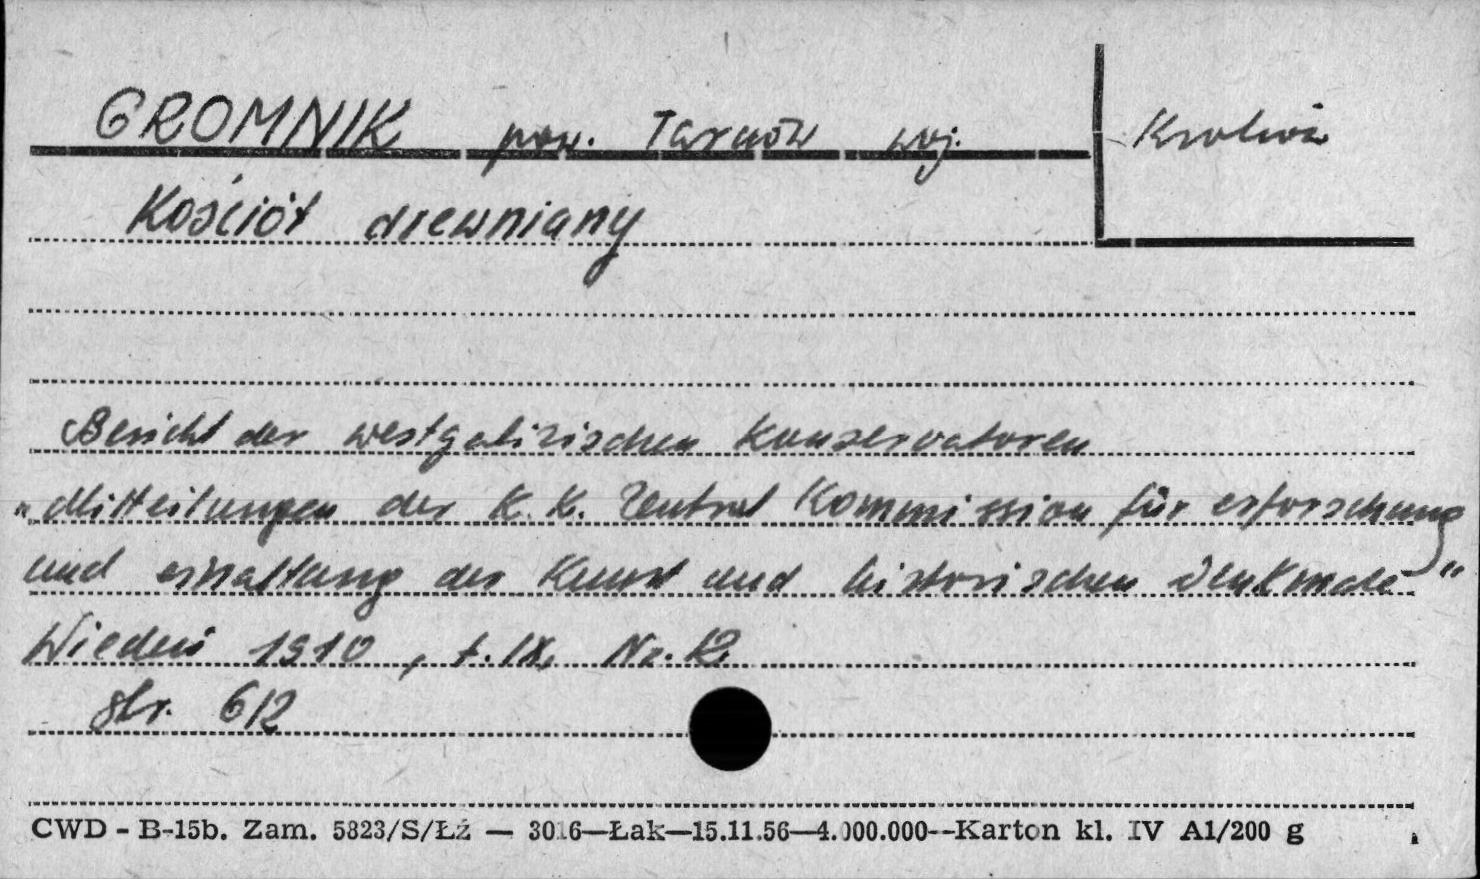 GROMNIK pow. Tarnów woj. Kraków
Kościół drewniany
Bericht der westgalizischen Konservatoren
"Mitteilungen der K.K. Zentral Kommission für erforschung
und erhaltung der Kunst und historischen Denkmale"
Wiedeń 1910, t. IX, Nr. 12.
str. 612
CWD - B-15b. Zam. 5823/S/Łź — 3016—Łak—15.11.56—4.000.000--Karton kl. IV A1/200 g